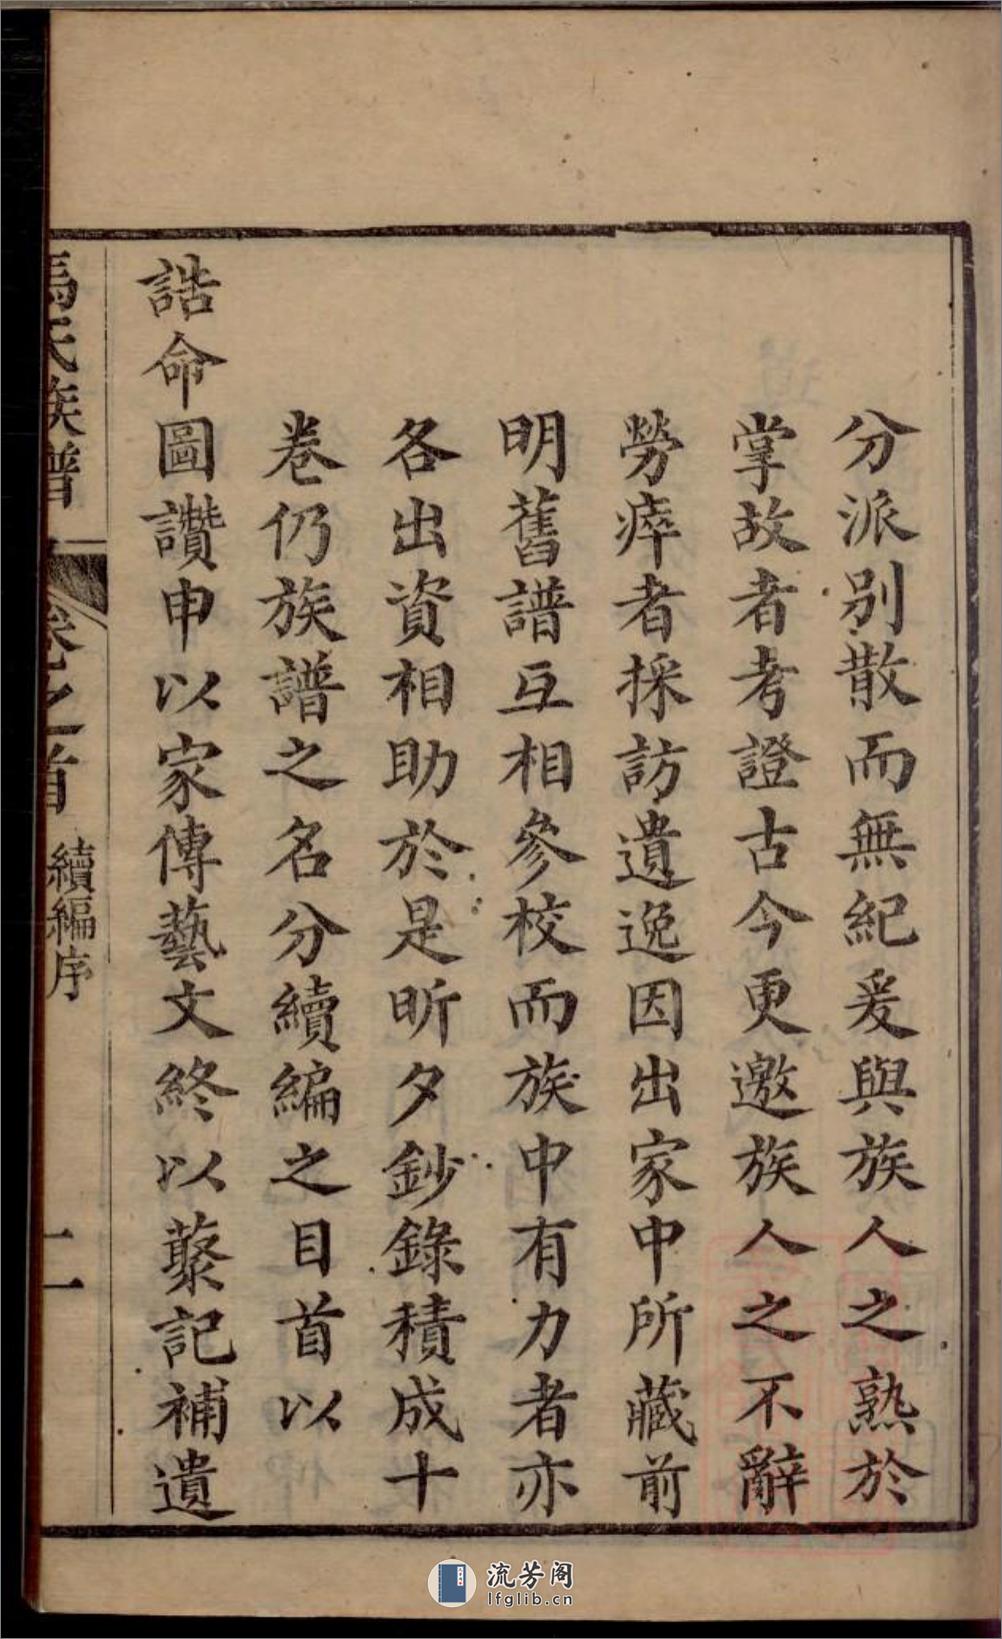 分派別散而無紀爰與族人之熟於
掌故者考證古今更邀族人之不辭
勞瘁者採訪遺逸因出家中所藏前
明舊譜互相參校而族中有力者亦
各出資相助於是昕夕鈔錄積成十
卷仍族譜之名分續編之目首以
誥命圖讚申以家傳藝文終以藂記補遺
馮氏族譜 卷之首 續編序 二
流芳阁
lfglib.cn